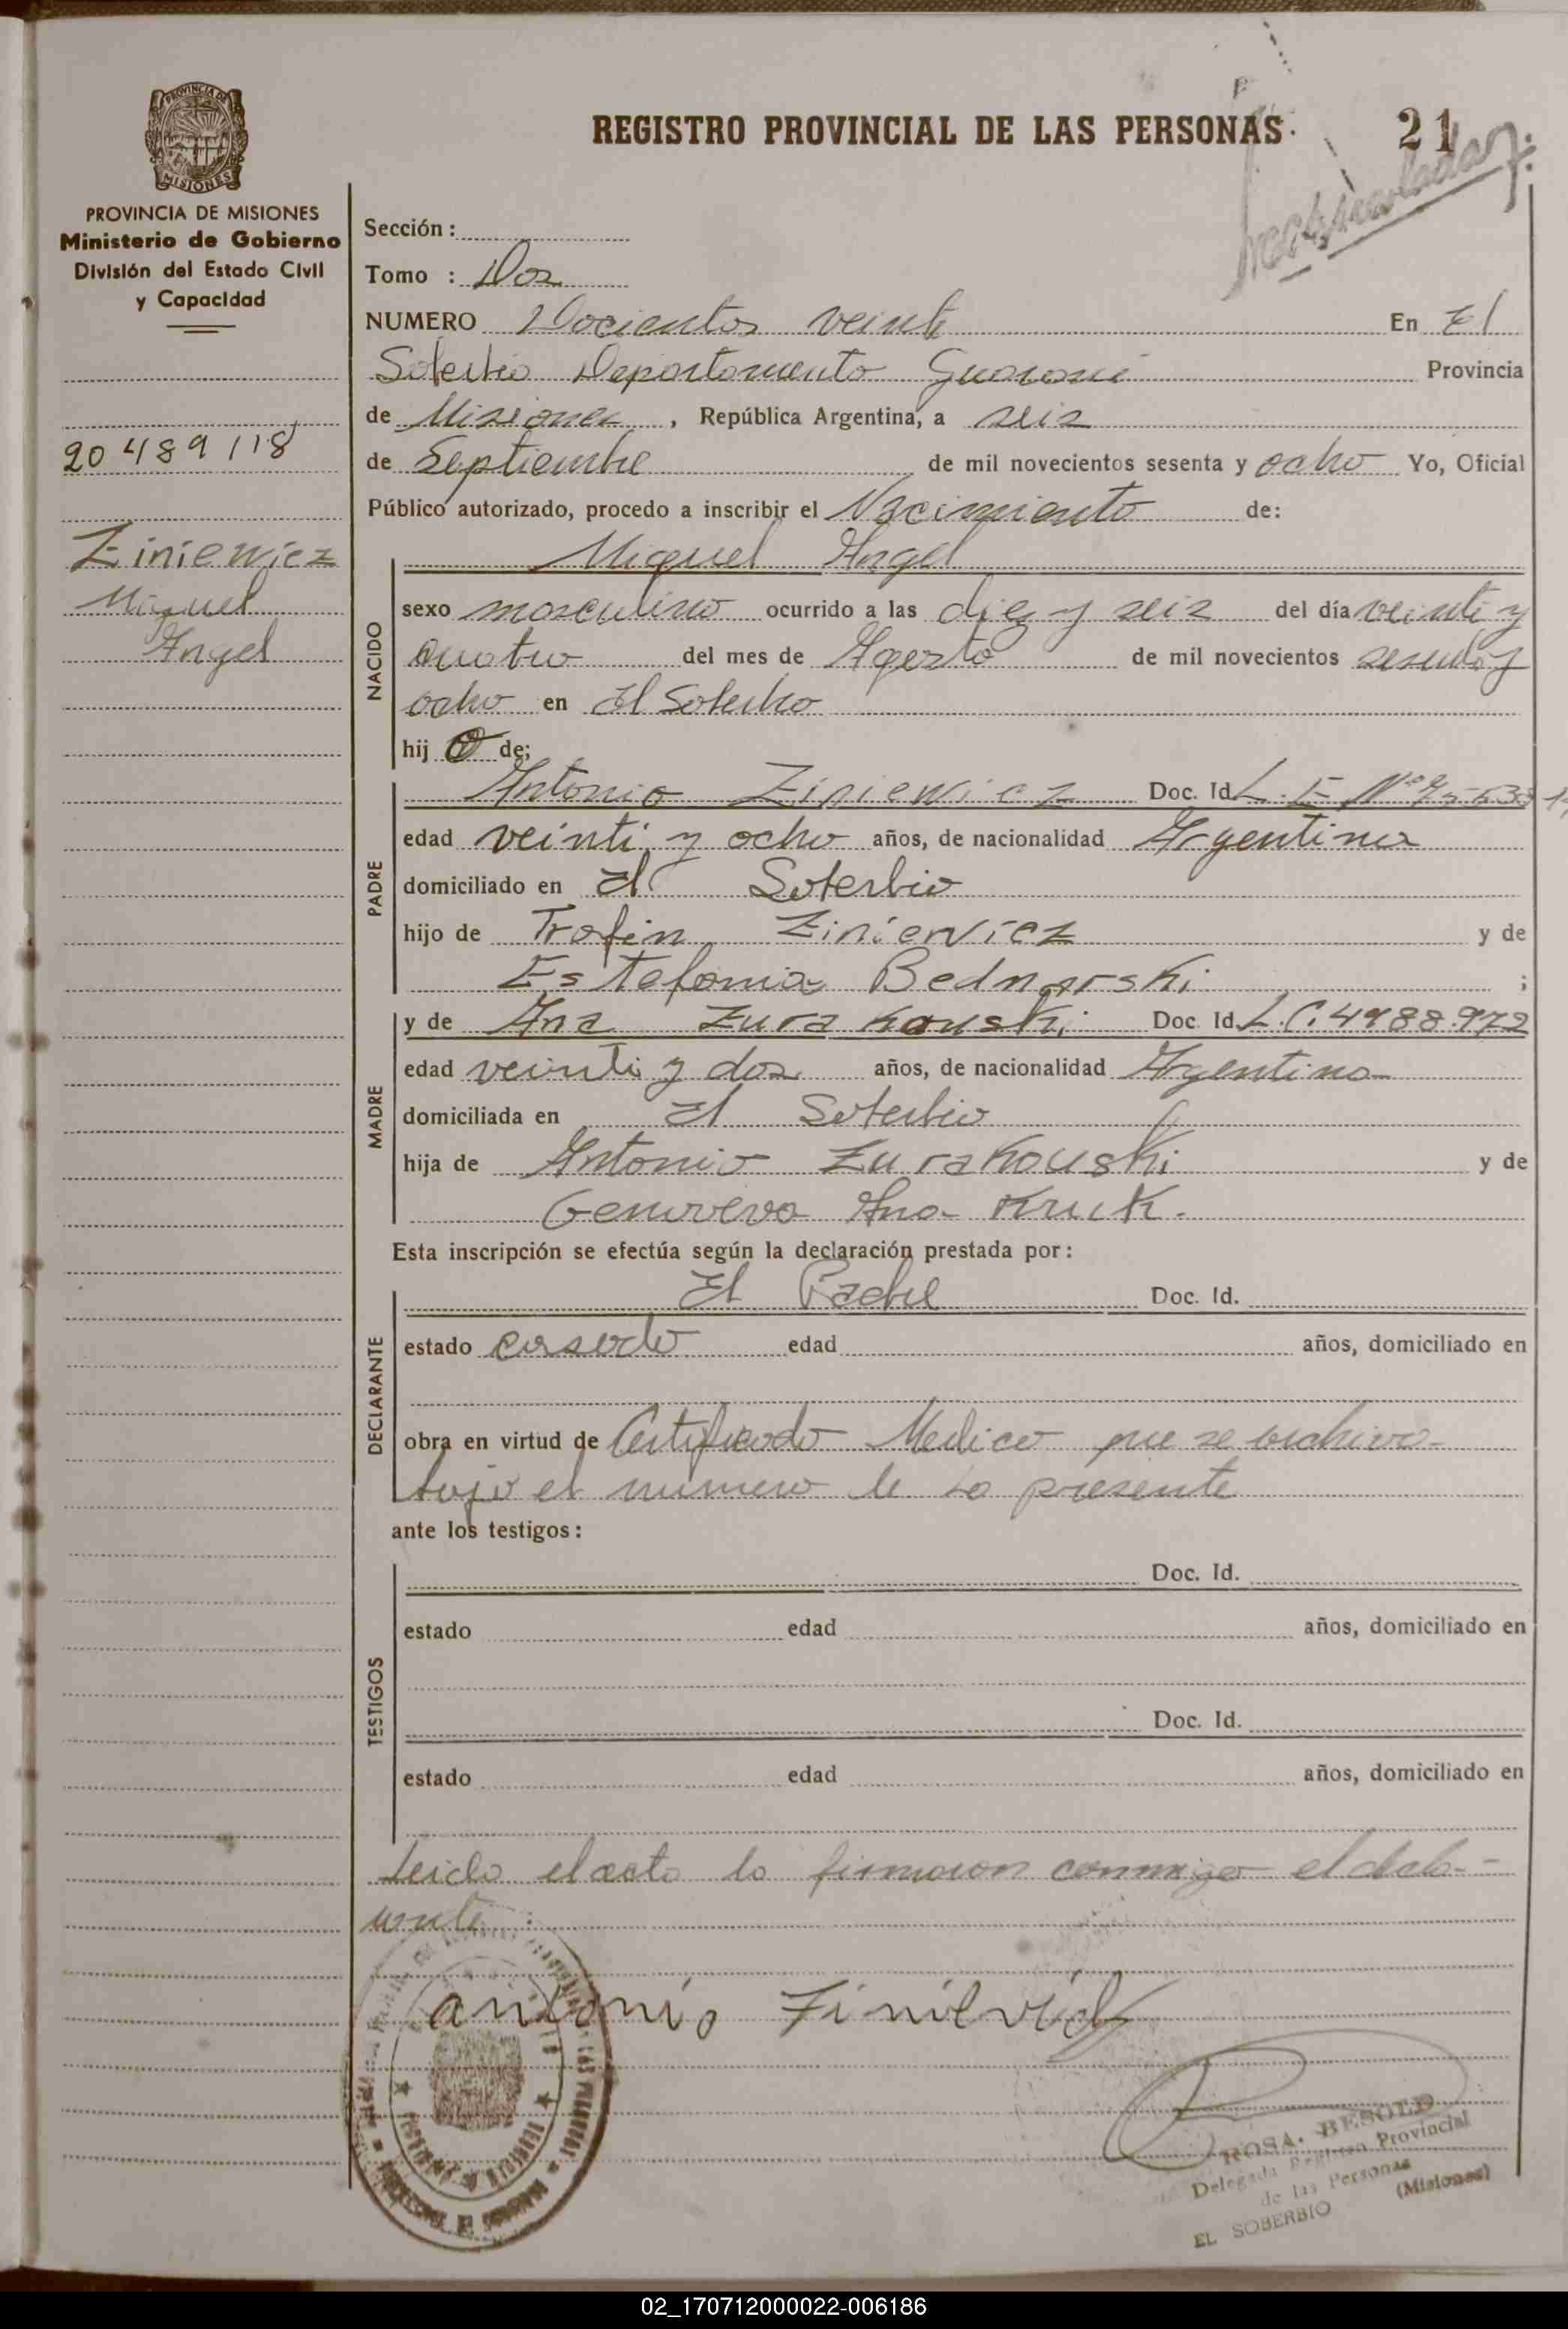 PROVINCIA DE MISIONES
REGISTRO PROVINCIAL DE LAS PERSONAS
21
PROVINCIA DE MISIONES
Ministerio de Gobierno
División del Estado Civil
y Capacidad
20 489 118
Ziniewicz
Miguel
Angel
Sección :
Tomo : Dos
NUMERO Docientos veinte En El
Soberbio Departamento Guarani Provincia
de Misiones , República Argentina, a seis
de Septiembre de mil novecientos sesenta y ocho Yo, Oficial
Público autorizado, procedo a inscribir el Nacimiento de:
NACIDO
Miguel Angel
sexo masculino ocurrido a las diez y seis del día veinti y
cuatro del mes de Agosto de mil novecientos sesenta y
ocho en El Soberbio
hij o de;
PADRE
Antonio Ziniewicz Doc. Id. L. E Nº
edad veinti y ocho años, de nacionalidad Argentina
domiciliado en El Soberbio
hijo de Trofin Ziniewicz y de
Estefania Bednarski ;
MADRE
y de Ana Zurakouski Doc. Id. L.C. 4988.972
edad veinti y dos años, de nacionalidad Argentina
domiciliada en El Soberbio
hija de Antonio Zurakouski y de
Genoveva Ana Kruk.
Esta inscripción se efectúa según la declaración prestada por :
DECLARANTE
El Padre Doc. Id.
estado casado edad años, domiciliado en
obra en virtud de Certificado Medico que se archiva
bajo el numero de la presente
ante los testigos :
TESTIGOS
Doc. Id.
estado edad años, domiciliado en
Doc. Id.
estado edad años, domiciliado en
Leida el acta la firmaron conmigo el decla-
rante :
antonio Ziniewicz
ROSA. BESOLD
Delegada Registro Provincial
de las Personas
EL SOBERBIO (Misiones)
02_170712000022-006186